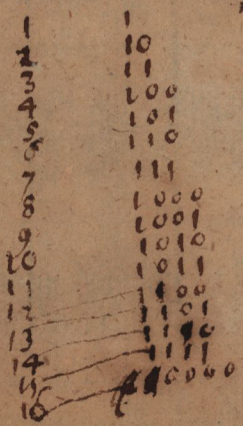 1 1
2 10
3 11
4 100
5 101
6 110
7 111
8 1000
9 1001
10 1010
11 1011
12 1100
13 1101
14 1110
15 1111
16 10000